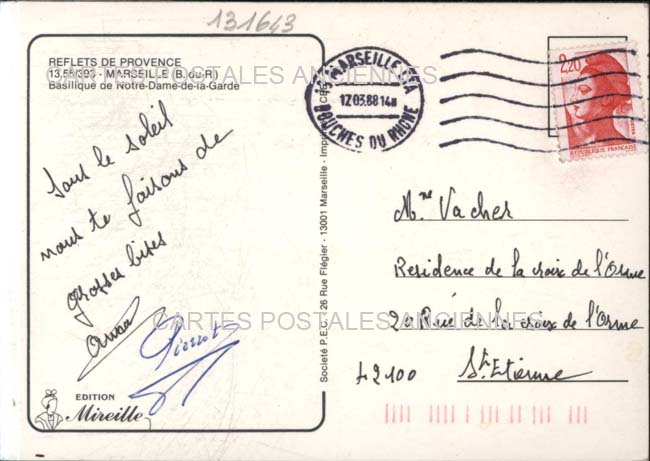 131643
REFLETS DE PROVENCE
13.55/393 - MARSEILLE (B.-du-R.)
Basilique de Notre-Dame-de-la-Garde
CARTES POSTALES ANCIENNES
Sous le soleil
nous te faisons de
grosses bises
Pierrot
EDITION
Mireille
Société P.E.C. - 26 Rue Flégier - 13001 Marseille
13 MARSEILLE
17.03.88 14H
BOUCHES DU RHONE
2,20
REPUBLIQUE FRANÇAISE
Mme Vacher
Residence de la croix de l'Orme
20 Rue de la croix de l'Orme
42100 St. Etienne
CARTES POSTALES ANCIENNES